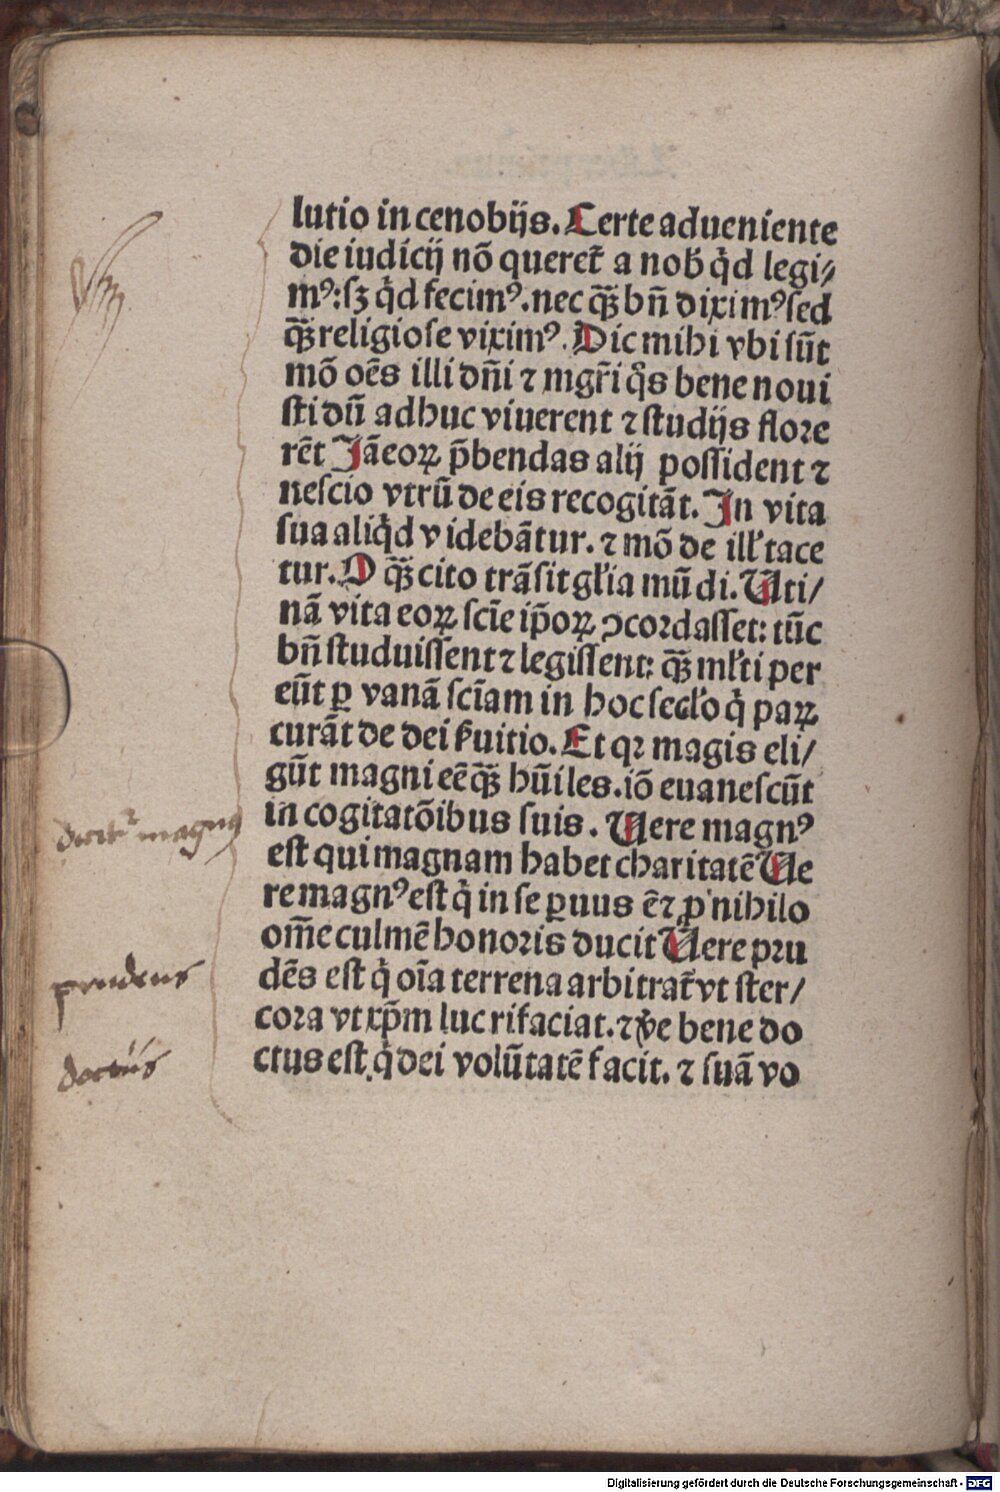 lutio in cenobijs. Certe adueniente
die iudicij nō queret̄ a nob̄ qd̓ legi⸗
mꝰ: sꝫ qd̓ fecimꝰ. nec qꝫ̄ bn̄ diximꝰ sed
qꝫ̄ religiose viximꝰ. Dic mihi vbi sūt
mō oēs illi dn̄i ⁊ mgr̄i qs̓ bene noui
sti dū adhuc viuerent ⁊ studijs flore
rēt Jā eoꝝ p̄bendas alij possident ⁊
nescio vtrū de eis recogitāt. Jn vita
sua aliqd̓ videbātur. ⁊ mō de ill̓ tace
tur. O qꝫ̄ cito trāsit gl̓ia mūdi. Uti/
nā vita eoꝝ scīe ip̄oꝝ ↄcordasset: tūc
bn̄ studuissent ⁊ legissent: qꝫ̄ ml̓ti per
eūt ꝑ vanā scīam in hoc secl̓o q̓ paꝝ
curāt de dei s̓uitio. Et qꝛ magis eli/
gūt magni eē qꝫ̄ hūiles. iō euanescūt
in cogitatōibus suis. Uere magnꝰ
est qui magnam habet charitatē Ue
re magnꝰ est q̓ in se ꝑuus ē ⁊ ꝓ nihilo
om̄e culmē honoris ducit Uere pru
dēs est q̓ oīa terrena arbitrat̄ vt ster/
cora vt xp̄m lucrifaciat. ⁊ v̓e bene do
ctus est, q̓ dei volūtatē facit. ⁊ suā vo
magnꝰ
prudens
doctus
Digitalisierung gefördert durch die Deutsche Forschungsgemeinschaft - DFG